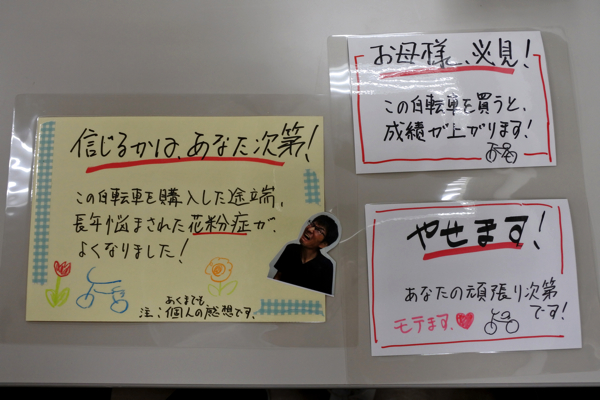 信じるかは、あなた次第!
この自転車を購入した途端、
長年悩まされた花粉症が、
よくなりました!
あくまでも、
注:個人の感想です。
お母様、必見!
この自転車を買うと、
成績が上がります!
やせます!
あなたの頑張り次第
です!
モテます。